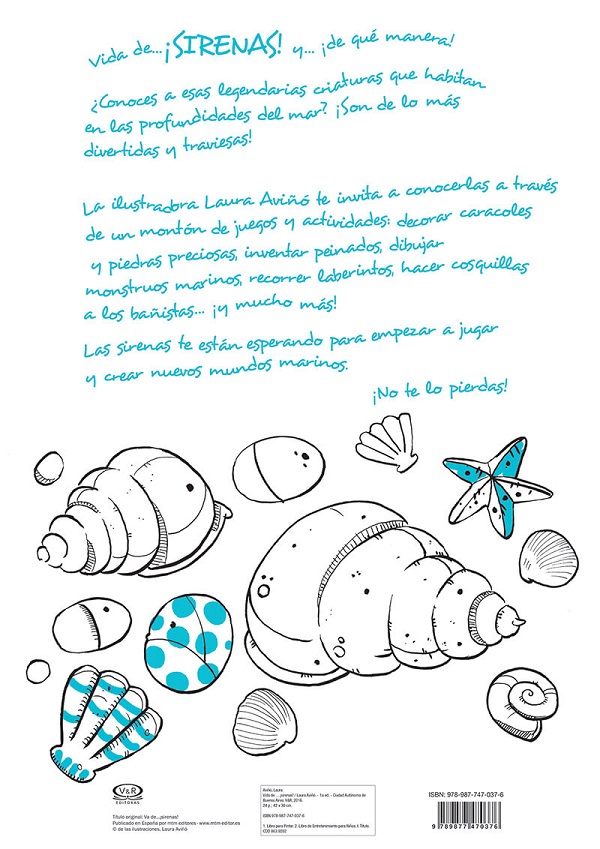 Vida de... ¡SIRENAS! y... ¡de qué manera!
¿Conoces a esas legendarias criaturas que habitan
en las profundidades del mar? ¡Son de lo más
divertidas y traviesas!
La ilustradora Laura Aviñó te invita a conocerlas a través
de un montón de juegos y actividades: decorar caracoles
y piedras preciosas, inventar peinados, dibujar
monstruos marinos, recorrer laberintos, hacer cosquillas
a los bañistas... ¡y mucho más!
Las sirenas te están esperando para empezar a jugar
y crear nuevos mundos marinos.
¡No te lo pierdas!
V&R
EDITORAS
Título original: Va de...¡sirenas!
Publicado en España por mtm editores - www.mtm-editor.es
© de las ilustraciones, Laura Aviñó
Aviñó, Laura
Vida de... ¡sirenas! / Laura Aviñó. - 1a ed. - Ciudad Autónoma de
Buenos Aires: V&R, 2016.
24 p.; 43 x 30 cm.
ISBN 978-987-747-037-6
1. Libro para Pintar. 2. Libro de Entretenimiento para Niños. I. Título.
CDD 863.9282
ISBN: 978-987-747-037-6
9 789877 470376